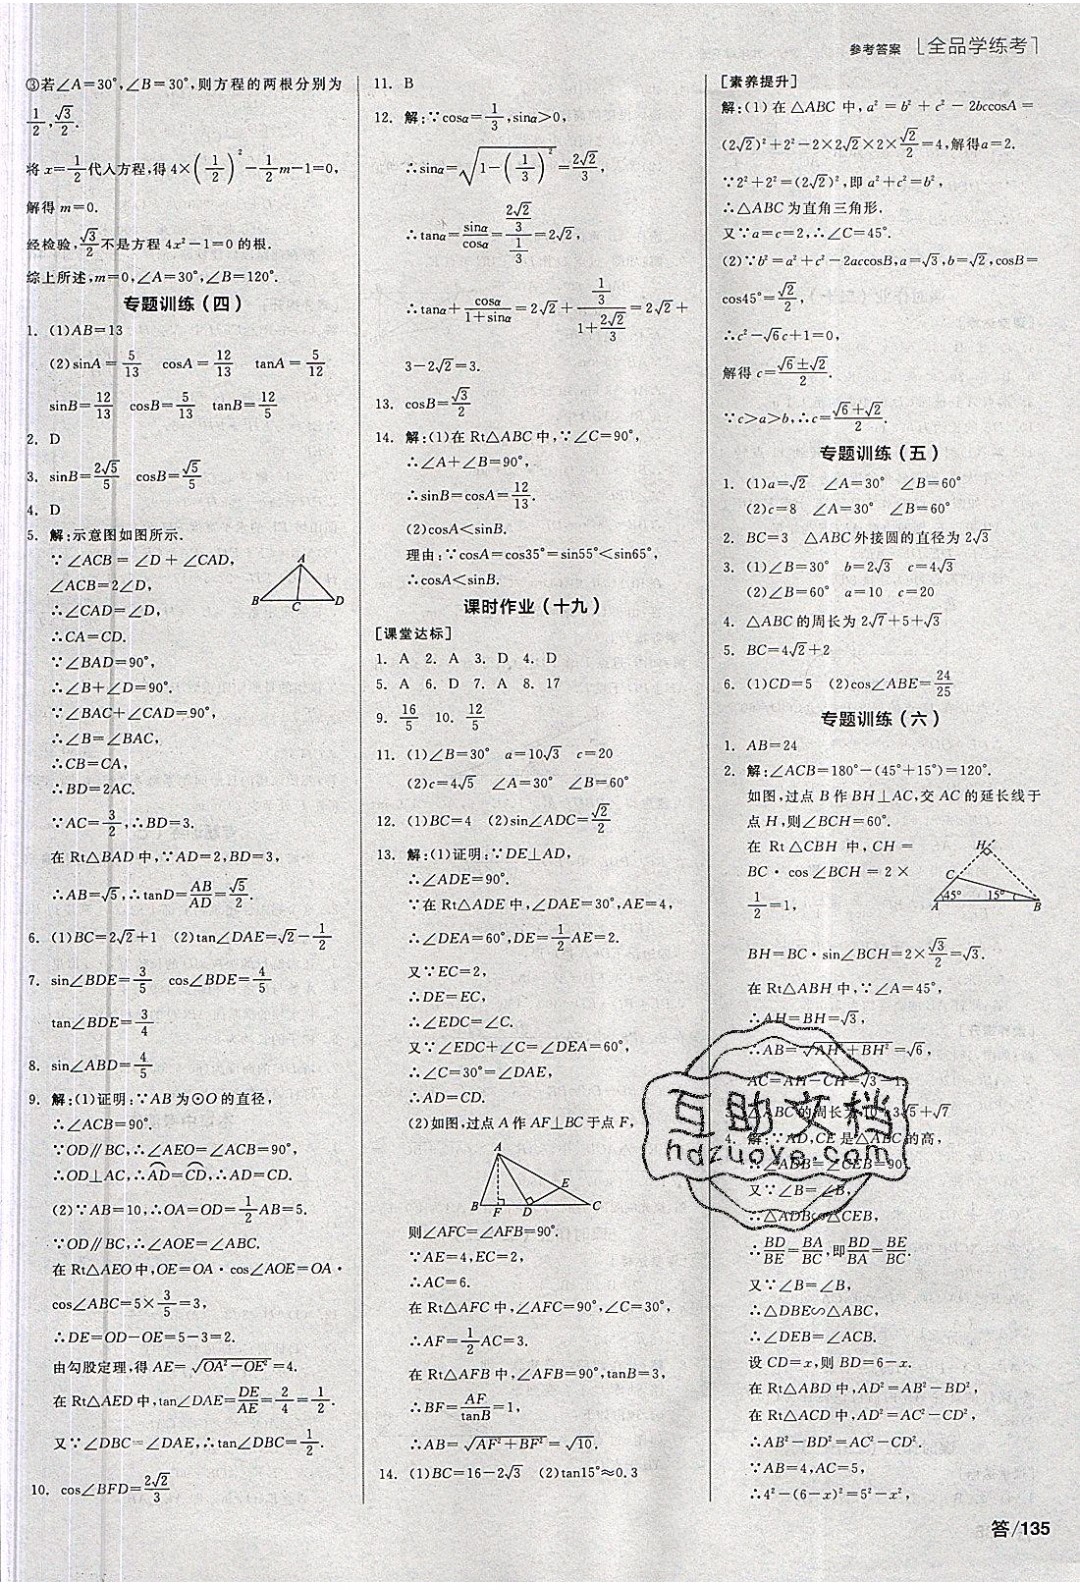 参考答案 [全品学练考]
③若∠A=30°,∠B=30°,则方程的两根分别为
1/2,√3/2.
将x=1/2代入方程,得4×(1/2)²-1/2m-1=0,
解得m=0.
经检验,√3/2不是方程4x²-1=0的根.
综上所述,m=0,∠A=30°,∠B=120°.
专题训练(四)
1. (1)AB=13
(2)sinA=5/13 cosA=12/13 tanA=5/12
sinB=12/13 cosB=5/13 tanB=12/5
2. D
3. sinB=2√5/5 cosB=√5/5
4. D
5. 解:示意图如图所示.
∵∠ACB=∠D+∠CAD,
∠ACB=2∠D,
∴∠CAD=∠D,
∴CA=CD.
∵∠BAD=90°,
∴∠B+∠D=90°.
∵∠BAC+∠CAD=90°,
∴∠B=∠BAC,
∴CB=CA,
∴BD=2AC.
∵AC=3/2,∴BD=3.
在Rt△BAD中,∵AD=2,BD=3,
∴AB=√5,∴tanD=AB/AD=√5/2.
A
B C D
6. (1)BC=2√2+1 (2)tan∠DAE=√2-1/2
7. sin∠BDE=3/5 cos∠BDE=4/5
tan∠BDE=3/4
8. sin∠ABD=4/5
9. 解:(1)证明:∵AB为⊙O的直径,
∴∠ACB=90°.
∵OD∥BC,∴∠AEO=∠ACB=90°,
∴OD⊥AC,∴AD=CD,∴AD=CD.
(2)∵AB=10,∴OA=OD=1/2AB=5.
∵OD∥BC,∴∠AOE=∠ABC.
在Rt△AEO中,OE=OA·cos∠AOE=OA·
cos∠ABC=5×3/5=3,
∴DE=OD-OE=5-3=2.
由勾股定理,得AE=√(OA²-OE²)=4.
在Rt△AED中,tan∠DAE=DE/AE=2/4=1/2.
又∵∠DBC=∠DAE,∴tan∠DBC=1/2.
10. cos∠BFD=2√2/3
11. B
12. 解:∵cosα=1/3,sinα>0,
∴sinα=√(1-(1/3)²)=2√2/3,
∴tanα=sinα/cosα=(2√2/3)/(1/3)=2√2,
∴tanα+cosα/(1+sinα)=2√2+(1/3)/(1+2√2/3)=2√2+
3-2√2=3.
13. cosB=√3/2
14. 解:(1)在Rt△ABC中,∵∠C=90°,
∴∠A+∠B=90°,
∴sinB=cosA=12/13.
(2)cosA<sinB.
理由:∵cosA=cos35°=sin55°<sin65°,
∴cosA<sinB.
课时作业(十九)
[课堂达标]
1. A 2. A 3. D 4. D
5. A 6. D 7. A 8. 17
9. 16/5 10. 12/5
11. (1)∠B=30° a=10√3 c=20
(2)c=4√5 ∠A=30° ∠B=60°
12. (1)BC=4 (2)sin∠ADC=√2/2
13. 解:(1)证明:∵DE⊥AD,
∴∠ADE=90°.
∵在Rt△ADE中,∠DAE=30°,AE=4,
∴∠DEA=60°,DE=1/2AE=2.
又∵EC=2,
∴DE=EC,
∴∠EDC=∠C.
又∵∠EDC+∠C=∠DEA=60°,
∴∠C=30°=∠DAE,
∴AD=CD.
(2)如图,过点A作AF⊥BC于点F,
A
E
B F D C
则∠AFC=∠AFB=90°.
∵AE=4,EC=2,
∴AC=6.
在Rt△AFC中,∠AFC=90°,∠C=30°,
∴AF=1/2AC=3.
在Rt△AFB中,∠AFB=90°,tanB=3,
∴BF=AF/tanB=1,
∴AB=√(AF²+BF²)=√10.
14. (1)BC=16-2√3 (2)tan15°≈0.3
[素养提升]
解:(1)在△ABC中,a²=b²+c²-2bccosA=
(2√2)²+2²-2×2√2×2×√2/2=4,解得a=2.
∵2²+2²=(2√2)²,即a²+c²=b²,
∴△ABC为直角三角形.
又∵a=c=2,∴∠C=45°.
(2)∵b²=a²+c²-2accosB,a=√3,b=√2,cosB=
cos45°=√2/2,
∴c²-√6c+1=0,
解得c=(√6±√2)/2.
∵c>a>b,∴c=(√6+√2)/2.
专题训练(五)
1. (1)a=√2 ∠A=30° ∠B=60°
(2)c=8 ∠A=30° ∠B=60°
2. BC=3 △ABC外接圆的直径为2√3
3. (1)∠B=30° b=2√3 c=4√3
(2)∠B=60° a=10 c=20
4. △ABC的周长为2√7+5+√3
5. BC=4√2+2
6. (1)CD=5 (2)cos∠ABE=24/25
专题训练(六)
1. AB=24
2. 解:∠ACB=180°-(45°+15°)=120°.
如图,过点B作BH⊥AC,交AC的延长线于
点H,则∠BCH=60°.
在Rt△CBH中,CH=
BC·cos∠BCH=2×
1/2=1,
H
C
45° 15°
A B
BH=BC·sin∠BCH=2×√3/2=√3.
在Rt△ABH中,∵∠A=45°,
∴AH=BH=√3,
∴AB=√(AH²+BH²)=√6,
AC=AH-CH=√3-1.
3. △ABC的周长为 3√5+√7
4. 解:∵AD,CE是△ABC的高,
∴∠ADB=∠CEB=90°
又∵∠B=∠B,
∴△ADB∽△CEB,
∴BD/BE=BA/BC,即BD/BA=BE/BC.
又∵∠B=∠B,
∴△DBE∽△ABC,
∴∠DEB=∠ACB.
设CD=x,则BD=6-x.
在Rt△ABD中,AD²=AB²-BD²,
在Rt△ACD中,AD²=AC²-CD²,
∴AB²-BD²=AC²-CD².
∵AB=4,AC=5,
∴4²-(6-x)²=5²-x²,
互助文档
hdzuoye.com
答/135